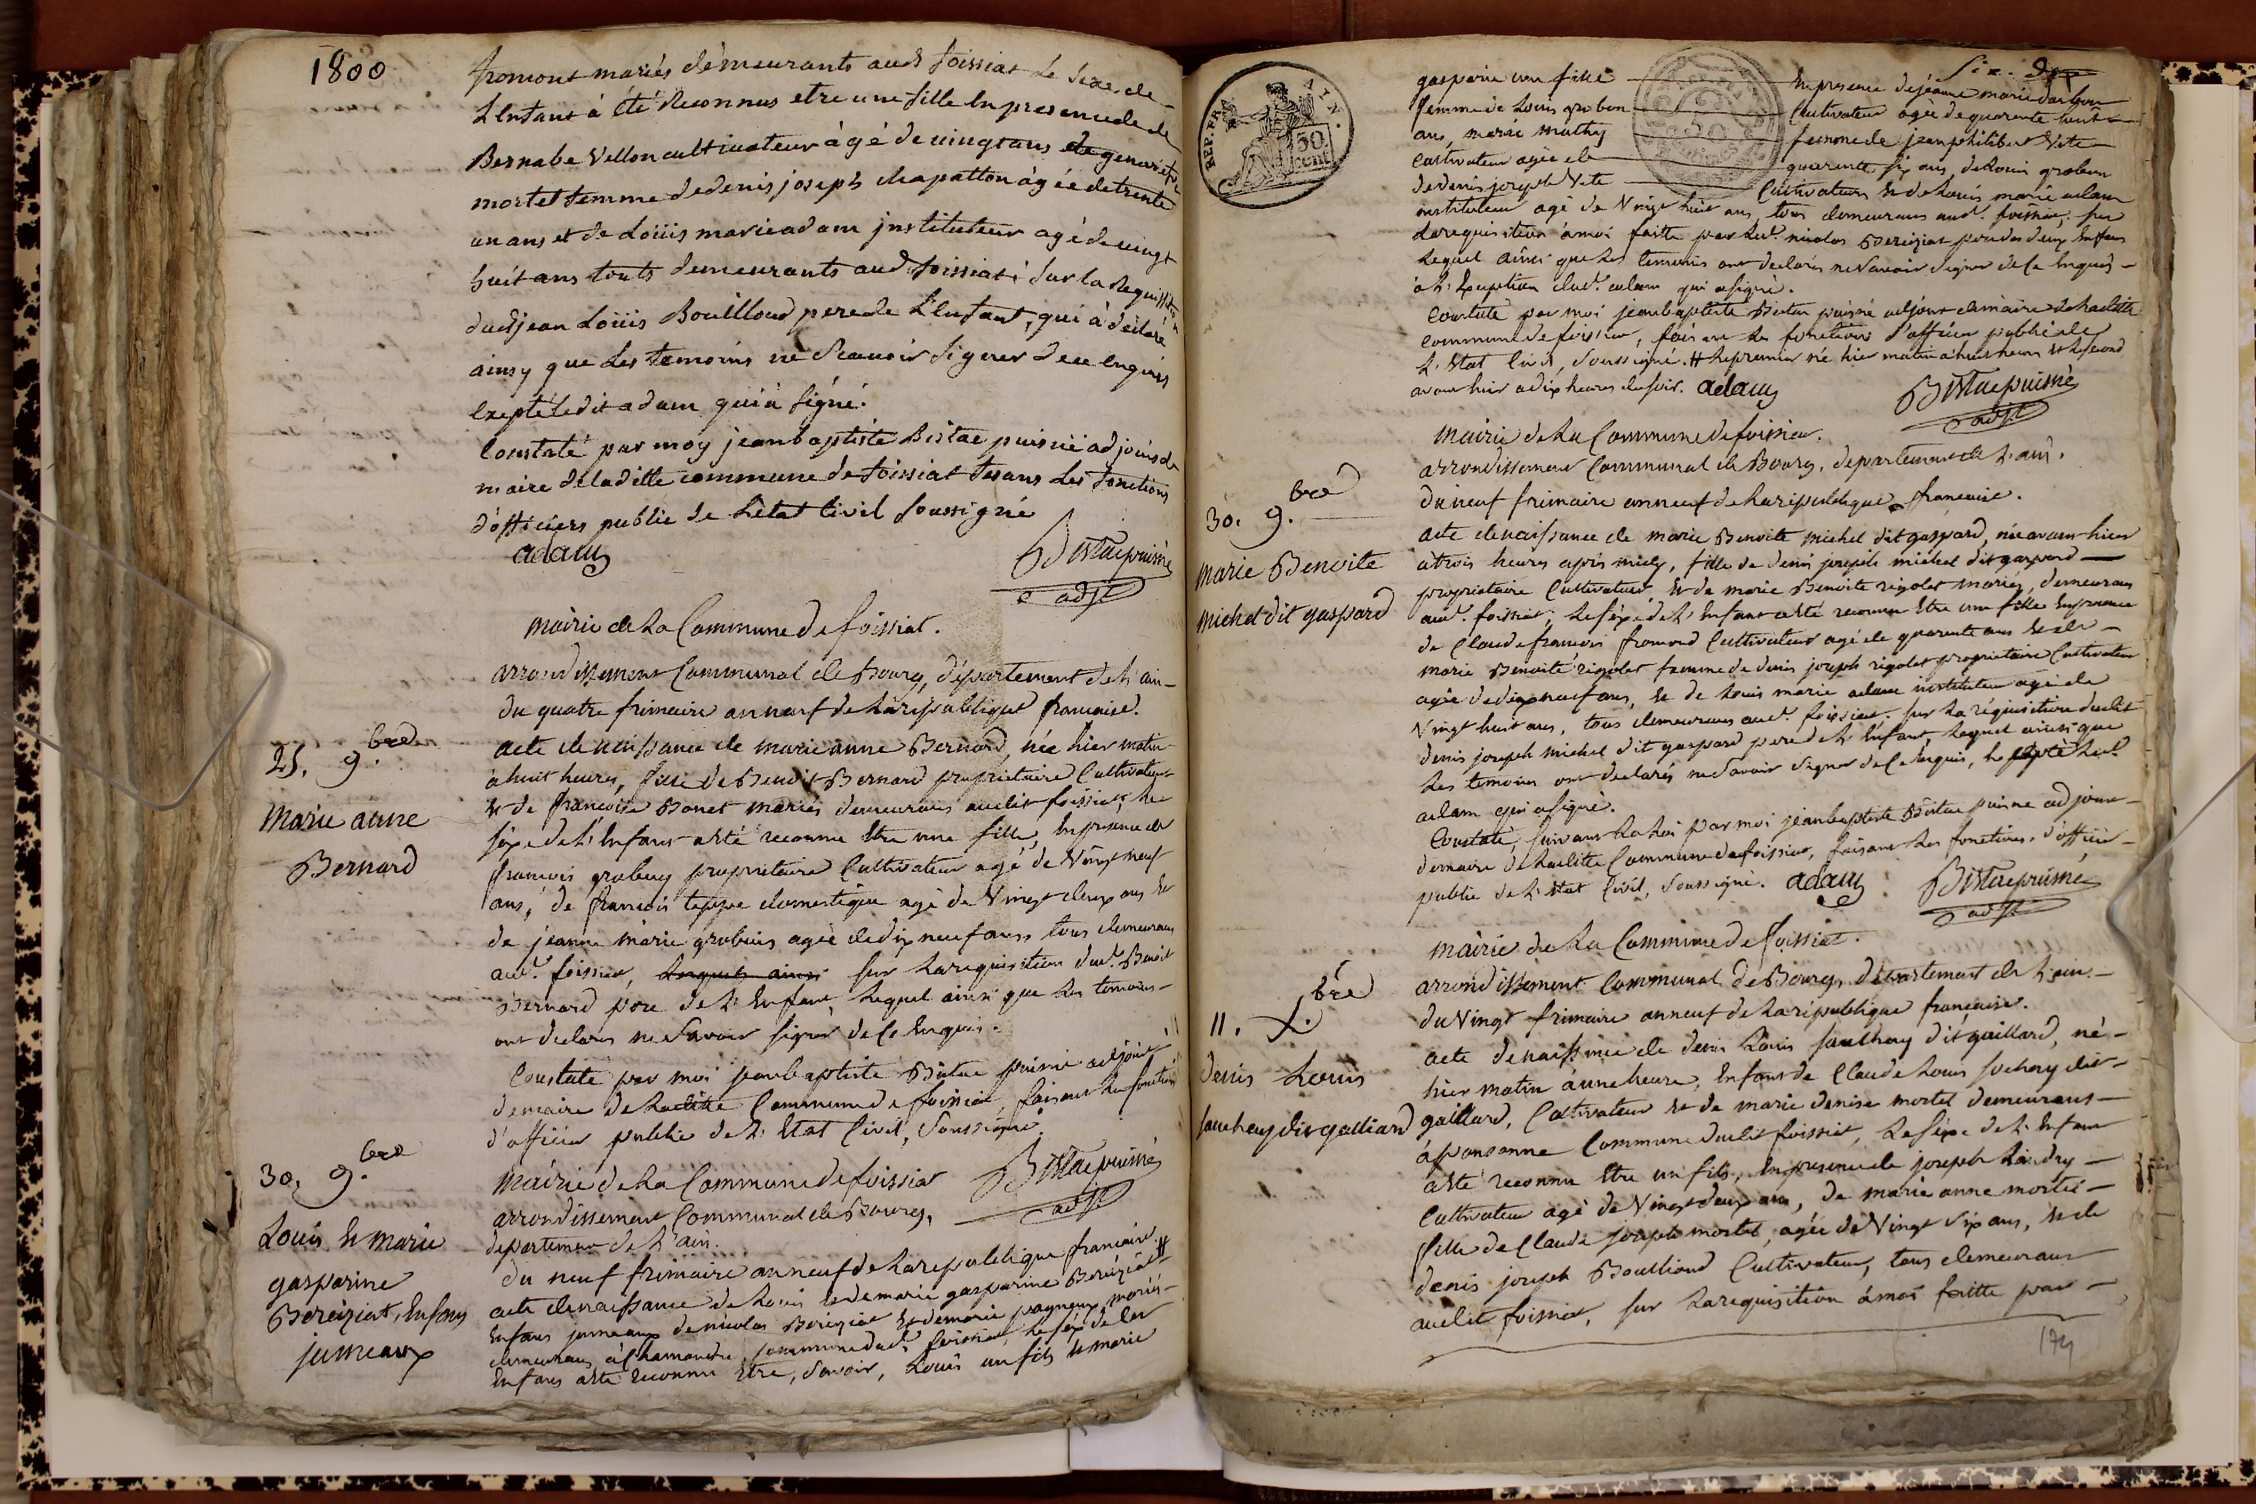 1800
fromont mariés demeurants aud foissiat Le sexe de
L'Enfant à été Reconnus etre une fille En presence de de
Bernabe Vellon cultivateur àgé de vingt ans de genevieve
mortel femme de denis joseph chapatton àgée de trente
un ans et de Loüis marie adam jnstituteur agé de vingt
huit ans touts demeurants aud foissiat; sur la Requisition
dud jean Loüis Bouilloud pere de L'Enfant, qui à déclaré
ainsy que Les temoins ne Scavoir signer de ce Enquis
Exepté Ledit adam qui à signé.
Constaté par moy jean baptiste Bistac puisné adjoint de
maire de laditte commune de foissiat fesans Les fonctions
d'officiers public de Létat Civil soussigné
adam
Bistac puisné
adjt
Mairie de La Commune de foissiat.
arrondissement Communal de Bourg, département de L'ain
du quatre frimaire an neuf de La république francaise.
25. 9.bre
Marie anne
Bernard
acte de naissance de marie anne Bernard, née hier matin
à huit heures, fille de Benoit Bernard proprietaire Cultivateur
Et de francoise Bonet mariés demeurans audit foissiat, Le
séxe de L'Enfant a été reconnu Etre une fille, En presence de
francois grobuis proprietaire Cultivateur agé de Vingt neuf
ans, de francois teppe domestique agé de Vingt deux ans Et
de jeanne marie grobuis agée de dix neuf ans tous demeurans
aud. foissiat, Lesquels ainsi sur La requisition dud. Benoit
Bernard pere de L'Enfant, Lequel ainsi que Les temoins
ont declarés ne Savoir signer de Ce Enquis.
Constaté par moi jean baptiste Bistac puisné adjoint
de maire de Laditte Commune de foissiat, faisant Les fonctions
d'officier public de L'Etat Civil, Soussigné.
Bistac puisné
adjt
30. 9.bre
Louis Et marie
gasparine
Bereiziat, Enfans
jumeaux
Mairie de La Commune de foissiat
arrondissement Communal de Bourg,
departement de L'ain.
du neuf frimaire an neuf de La republique francaise.
acte de naissance de Louis Et de marie gasparine Bereiziat #
Enfans jumeaux de nicolas Bereiziat Et de marie pagneux mariés
demeurans à Chamandre, commune dud. foissiat, Le séxe de Les
Enfans a été reconnu Etre, Savoir, Louis un fils Et marie
REP. FRA. AIN.
50
cent
Six.
gasparine une fille En presence de jeanne marie
femme de Louis grobon Cultivateur agée de quarante huit
ans, marie Mathy femme de jean philibert Vete
Cultivateur agée de quarante six ans, de Louis grobon
de denis joseph Vete Cultivateur Et de Louis marie adam
instituteur agé de Vingt huit ans, tous demeurans aud. foissiat, sur
La requisition à moi faitte par Led. nicolas Bereiziat pere des deux Enfans
Lequel ainsi que Les temoins ont declarés ne Savoir signer de Ce Enquis
à L'Exception dud. adam qui a signé.
Constaté par moi jean baptiste Bistac puisné adjoint de maire de Laditte
Commune de foissiat, faisant Les fonctions d'officier public de
L'Etat Civil, Soussigné. # Le premier né hier matin à huit heures Et Le second
avant hier à dix heures du soir. adam
Bistac puisné
adjt
Mairie de La Commune de foissiat.
arrondissement Communal de Bourg, département de L'ain.
du neuf frimaire an neuf de La république francaise.
30. 9.bre
Marie Benoite
Michel dit gaspard
acte de naissance de marie Benoite michel dit gaspard, née avant hier
à trois heures après midy, fille de denis joseph michel dit gaspard
proprietaire Cultivateur, Et de marie Benoite rigolet mariés, demeurans
aud. foissiat, Le séxe de L'Enfant a été reconnu Etre une fille En presence
de Claude francois fromond Cultivateur agé de quarante ans Et de
marie Benoite rigolet femme de denis joseph rigolet proprietaire Cultivateur
agée de dix neuf ans, Et de Louis marie adam instituteur agé de
Vingt huit ans, tous demeurans aud. foissiat. sur La réquisition dudit
denis joseph michel dit gaspard pere de L'Enfant, Lequel ainsi que
Les temoins ont declarés ne Savoir signer de Ce Enquis, Exepté Led.
adam qui a signé.
Constaté, suivant La Loi par moi jean baptiste Bistac puisne adjoint
de maire de Laditte Commune de foissiat, faisant Les fonctions d'officier
public de L'Etat Civil, Soussigné. adam
Bistac puisné
adjt
Mairie de La Commune de foissiat.
arrondissement Communal de Bourg, département de L'ain.
du Vingt frimaire an neuf de La république francaise.
11. X.bre
Denis Louis
Sauchay dit galliard
acte de naissance de denis Louis Sauchay dit gaillard, né
hier matin à une heure, Enfant de Claude Louis Sochay dit
gaillard, Cultivateur Et de marie denise mortel demeurans
à ponsonne Commune dudit foissiat, Le séxe de L'Enfant
a été reconnu Etre un fils, En presence de joseph Landry
Cultivateur agé de Vingt deux ans, de marie anne mortel
fille de Claude joseph mortel agée de Vingt Six ans, Et de
denis joseph Boulliond Cultivateur, tous demeurans
audit foissiat, sur La requisition à moi faitte par